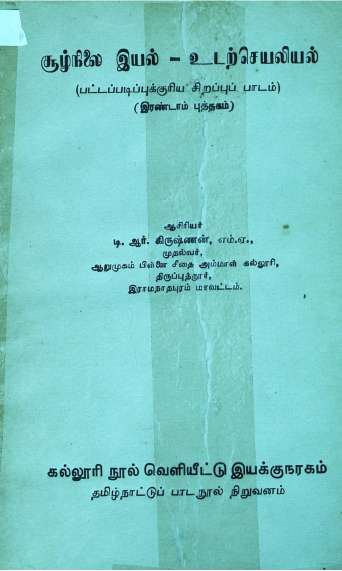 சூழ்நிலை இயல் – உடற்செயலியல்
(பட்டப்படிப்புக்குரிய சிறப்புப் பாடம்)
(இரண்டாம் புத்தகம்)
ஆசிரியர்
டி. ஆர். கிருஷ்ணன், எம்.ஏ.,
முதல்வர்,
ஆறுமுகம் பிள்ளை சீதை அம்மாள் கல்லூரி,
திருப்புத்தூர்,
இராமநாதபுரம் மாவட்டம்.
கல்லூரி நூல் வெளியீட்டு இயக்குநரகம்
தமிழ்நாட்டுப் பாடநூல் நிறுவனம்